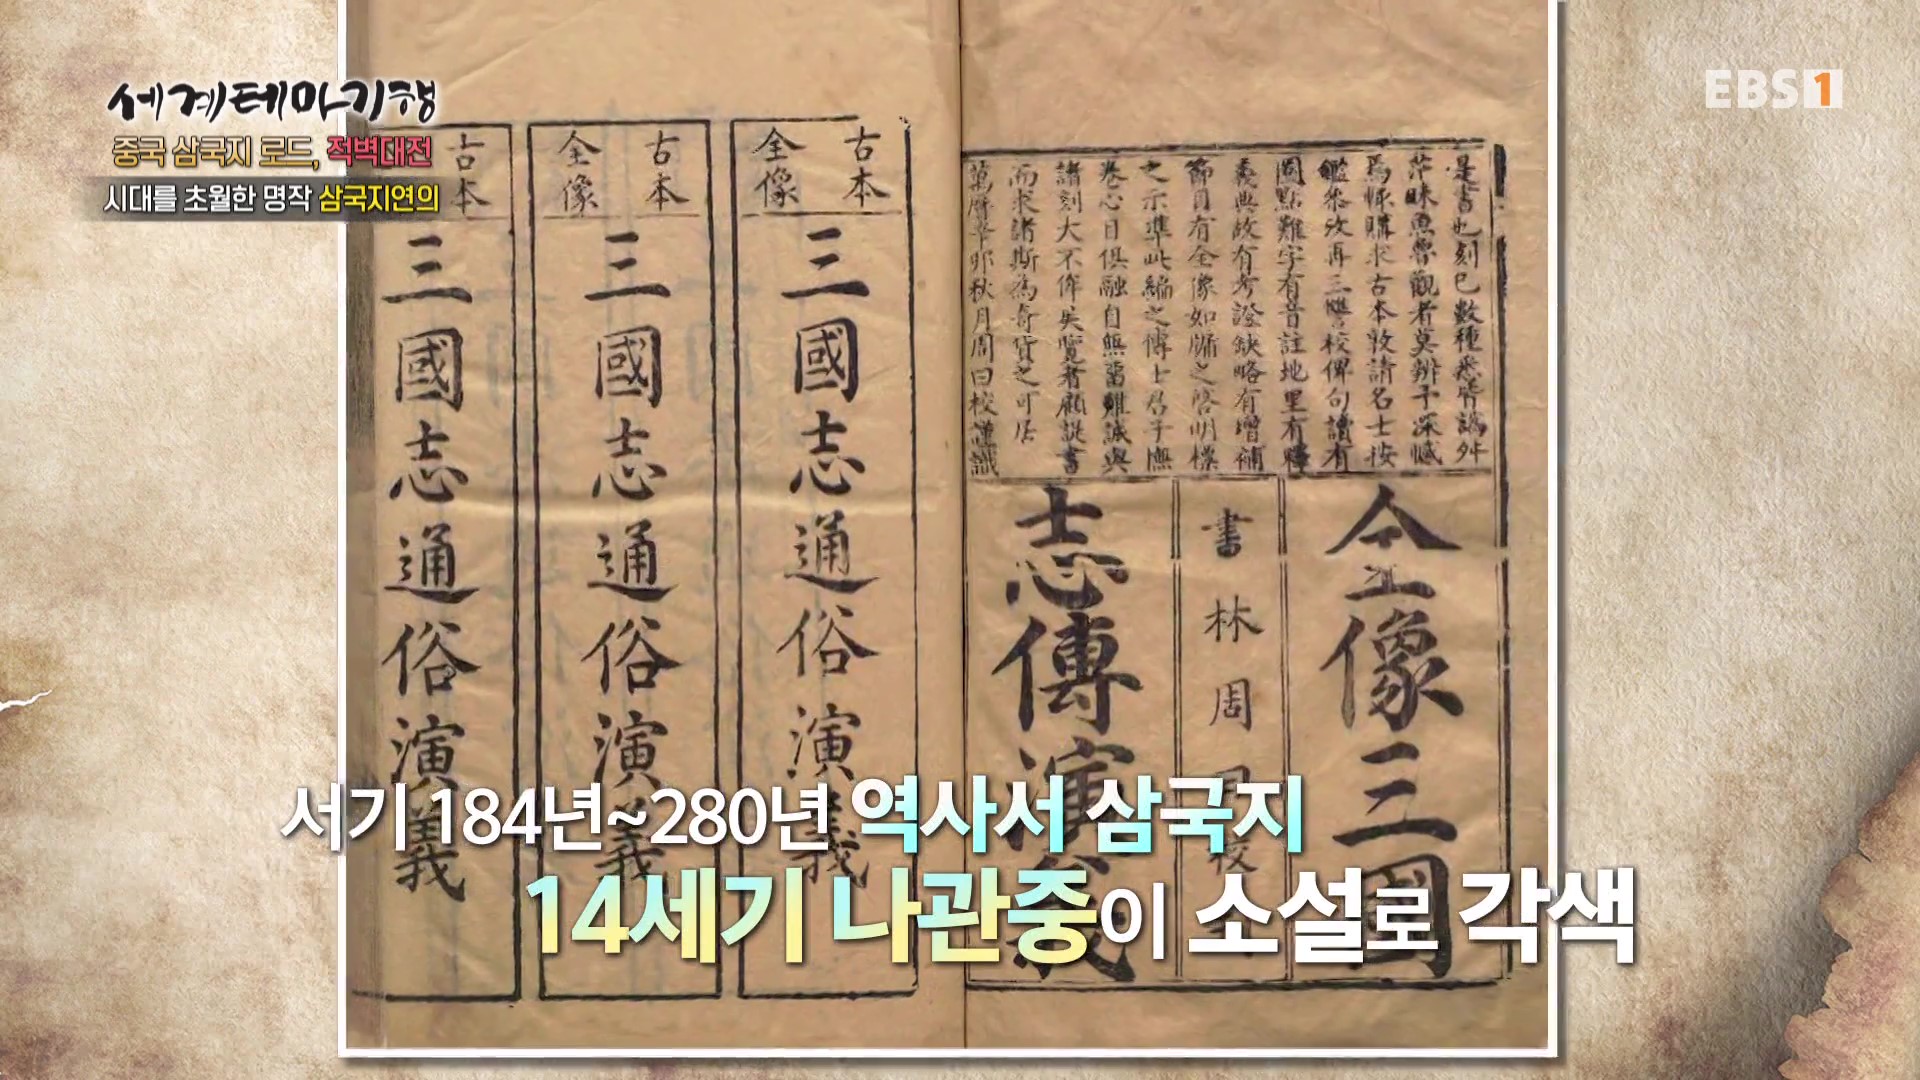 세계테마기행
중국 삼국지 로드, 적벽대전
시대를 초월한 명작 삼국지연의
EBS1
是書也刻已數種悉皆譌舛
茫昧魚魯觀者莫辨予深憾
焉輙購求古本敦請名士按
鑑參攷再三讐校俾句讀有
圈點難字有音註地里有釋
義典故有考證缺略有增補
節目有全像如牖之啓明標
之示準此編之傳士君子撫
卷心目俱融自無留難誠與
諸刻大不侔矣覽者顧諟書
而求諸斯為奇貨之可居
萬曆辛卯秋月周曰校謹識
全像三國
書林周曰校
志傳演義
古本
全像
三國志通俗演義
古本
全像
三國志通俗演義
古本
三國志通俗演義
서기 184년~280년 역사서 삼국지
14세기 나관중이 소설로 각색